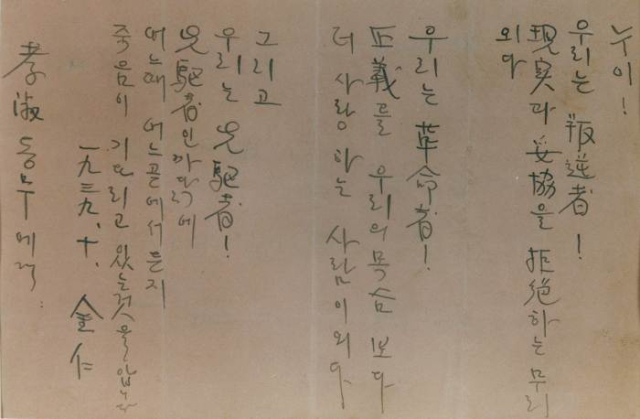 누이!
우리는 叛逆者!
現実과 妥協을 拒絶하는 무리
외다
우리는 革命者!
正義를 우리의 목숨 보다
더 사랑하는 사람이외다
그리고
우리는 先驅者!
先驅者인 까닭에
어느때 어느곧에서든지
죽음이 기다리고 있는것을 압니다
一九三九、十、 金仁
孝淑동무에게.